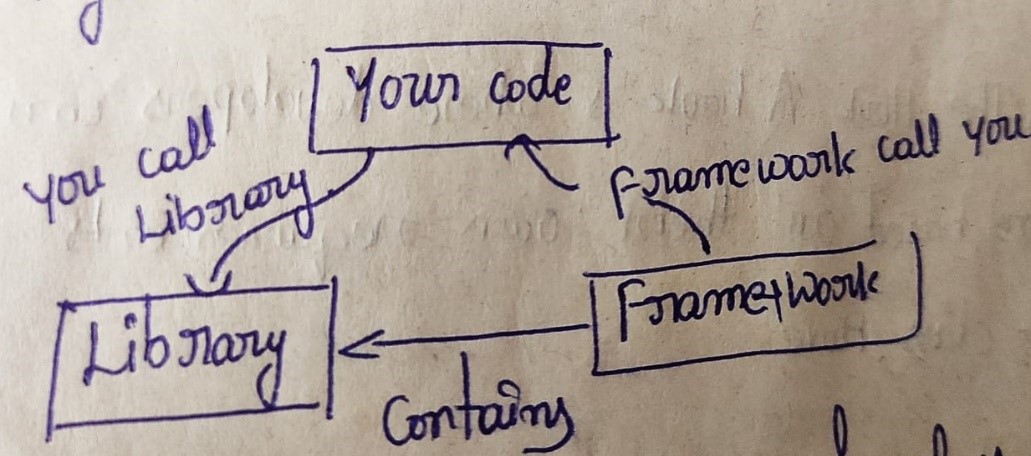 Your code
You call
Library
Framework call you
Library
Framework
Contains